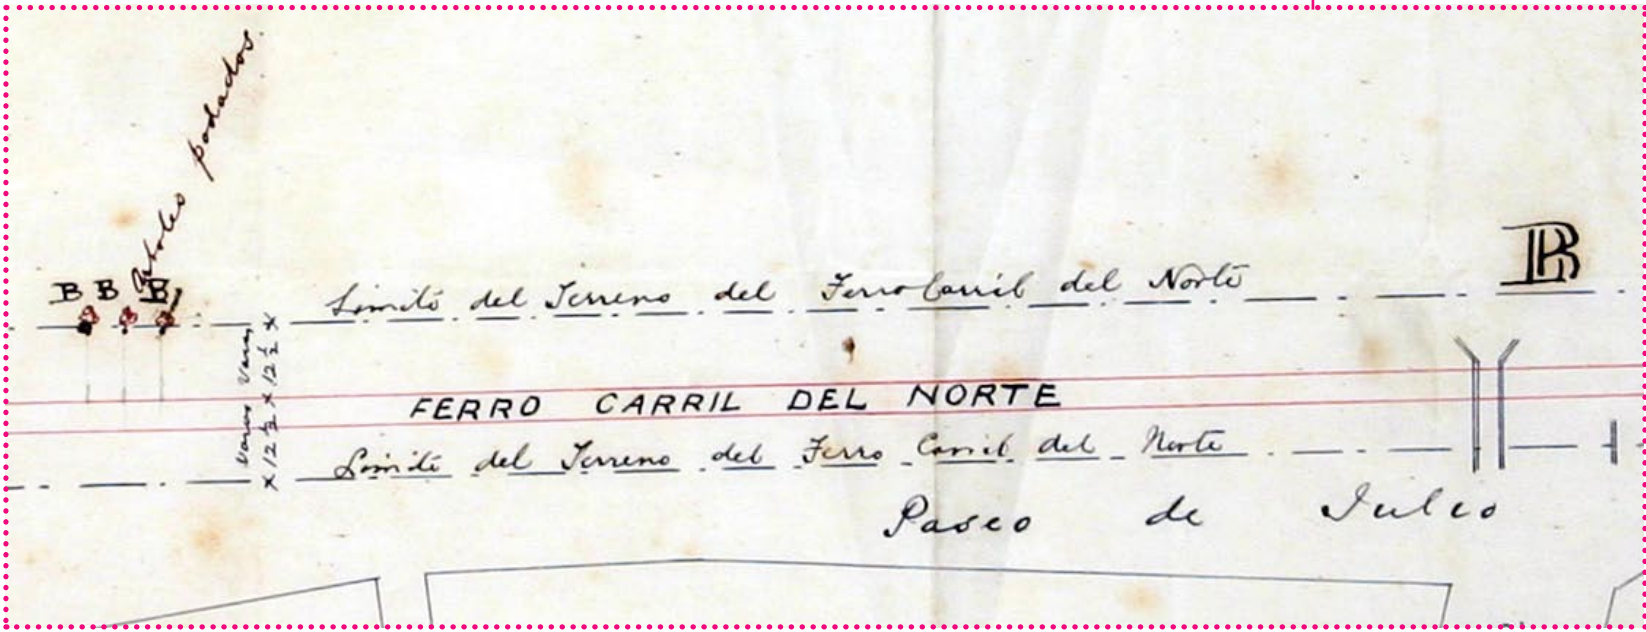 Arboles podados.
B B B
B
Limite del Terreno del Ferro Carril del Norte
Varas Varas
x 12 ½ x 12 ½ x
FERRO CARRIL DEL NORTE
Limite del Terreno del Ferro Carril del Norte
Paseo de Julio